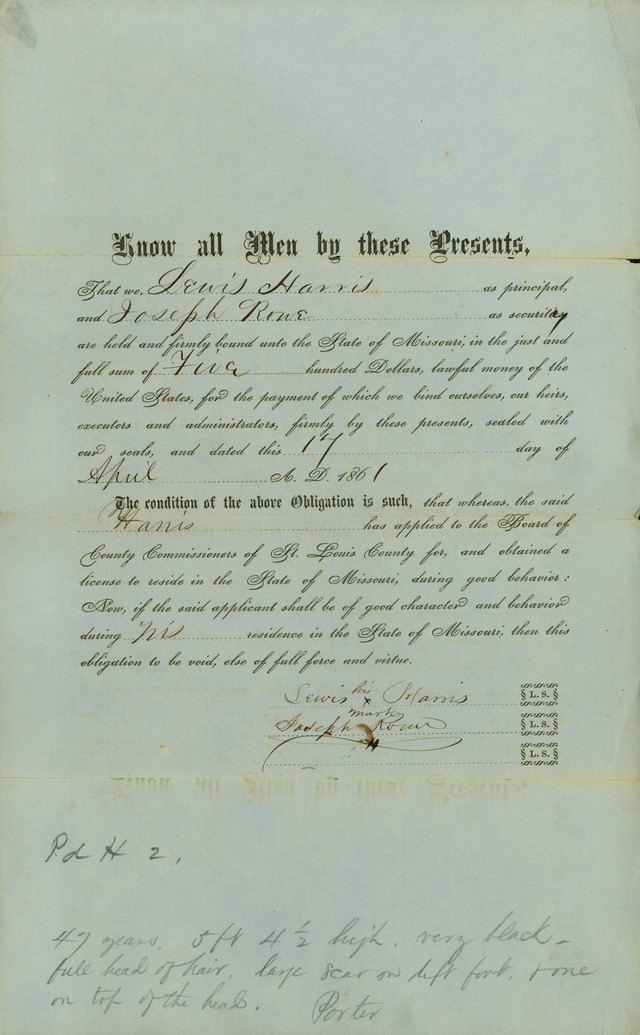 Know all Men by these Presents,
That we, Lewis Harris as principal,
and Joseph Rowe as security
are held and firmly bound unto the State of Missouri, in the just and
full sum of Five hundred Dollars, lawful money of the
United States, for the payment of which we bind ourselves, our heirs,
executors and administrators, firmly by these presents, sealed with
our seals, and dated this 17 day of
April A. D. 1861
The condition of the above Obligation is such, that whereas, the said
Harris has applied to the Board of
County Commissioners of St. Louis County for, and obtained a
license to reside in the State of Missouri, during good behavior:
Now, if the said applicant shall be of good character and behavior
during his residence in the State of Missouri, then this
obligation to be void, else of full force and virtue.
Lewis his x mark Harris L. S.
Joseph Rowe L. S.
L. S.
Pd H 2,
47 years, 5 ft 4 1/2 high. very black –
full head of hair. large scar on left foot. & one
on top of the head. Porter